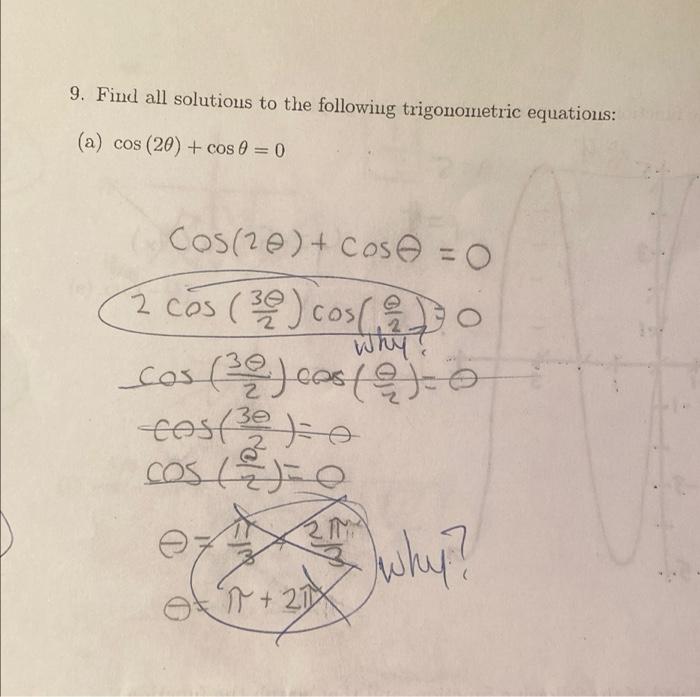 9. Find all solutions to the following trigonometric equations:
(a) cos (2θ) + cos θ = 0
cos(2θ) + cosθ = 0
2 cos (3θ/2) cos(θ/2) = 0
why?
cos (3θ/2) cos (θ/2) = 0
cos(3θ/2) = 0
cos (θ/2) = 0
θ = π/3 + 2π/3
why?
θ = π + 2π